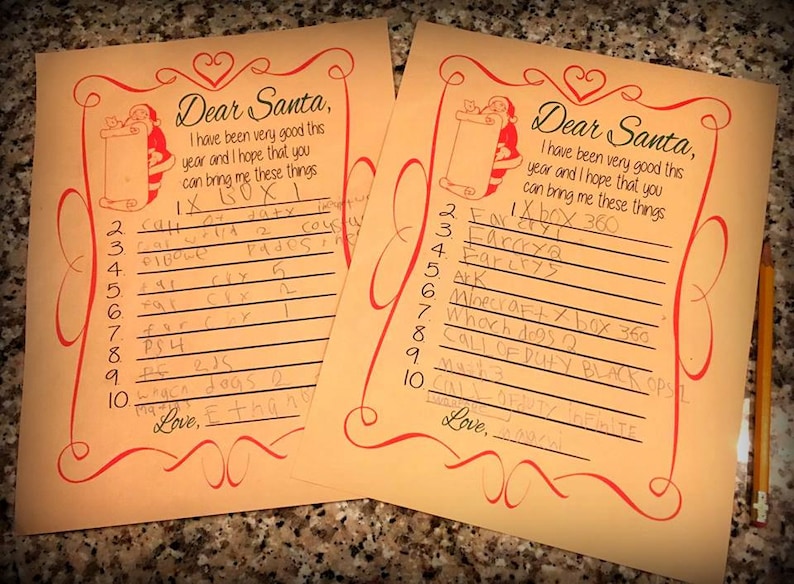 Dear Santa,
I have been very good this
year and I hope that you
can bring me these things
1 X BOX 1
2. Call Of duty
3. 2
4.
5. far cry 5
6. far cry 2
7. far cry 1
8. PS4
9. 2ds
10. whach dogs 2
Love, Ethan
Dear Santa,
I have been very good this
year and I hope that you
can bring me these things
1 Xbox 360
2. Far cry 1
3. Farcry2
4. Farcry5
5. ArK
6. Minecraft Xbox 360
7. Whach dogs 2
8. CALL OF DUTY BLACK OPS
9.
10. CALL OF DUTY INFINITE
Love,